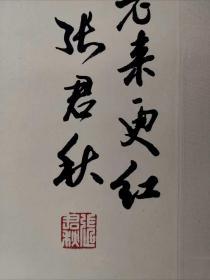 老来更红
张君秋
张君秋